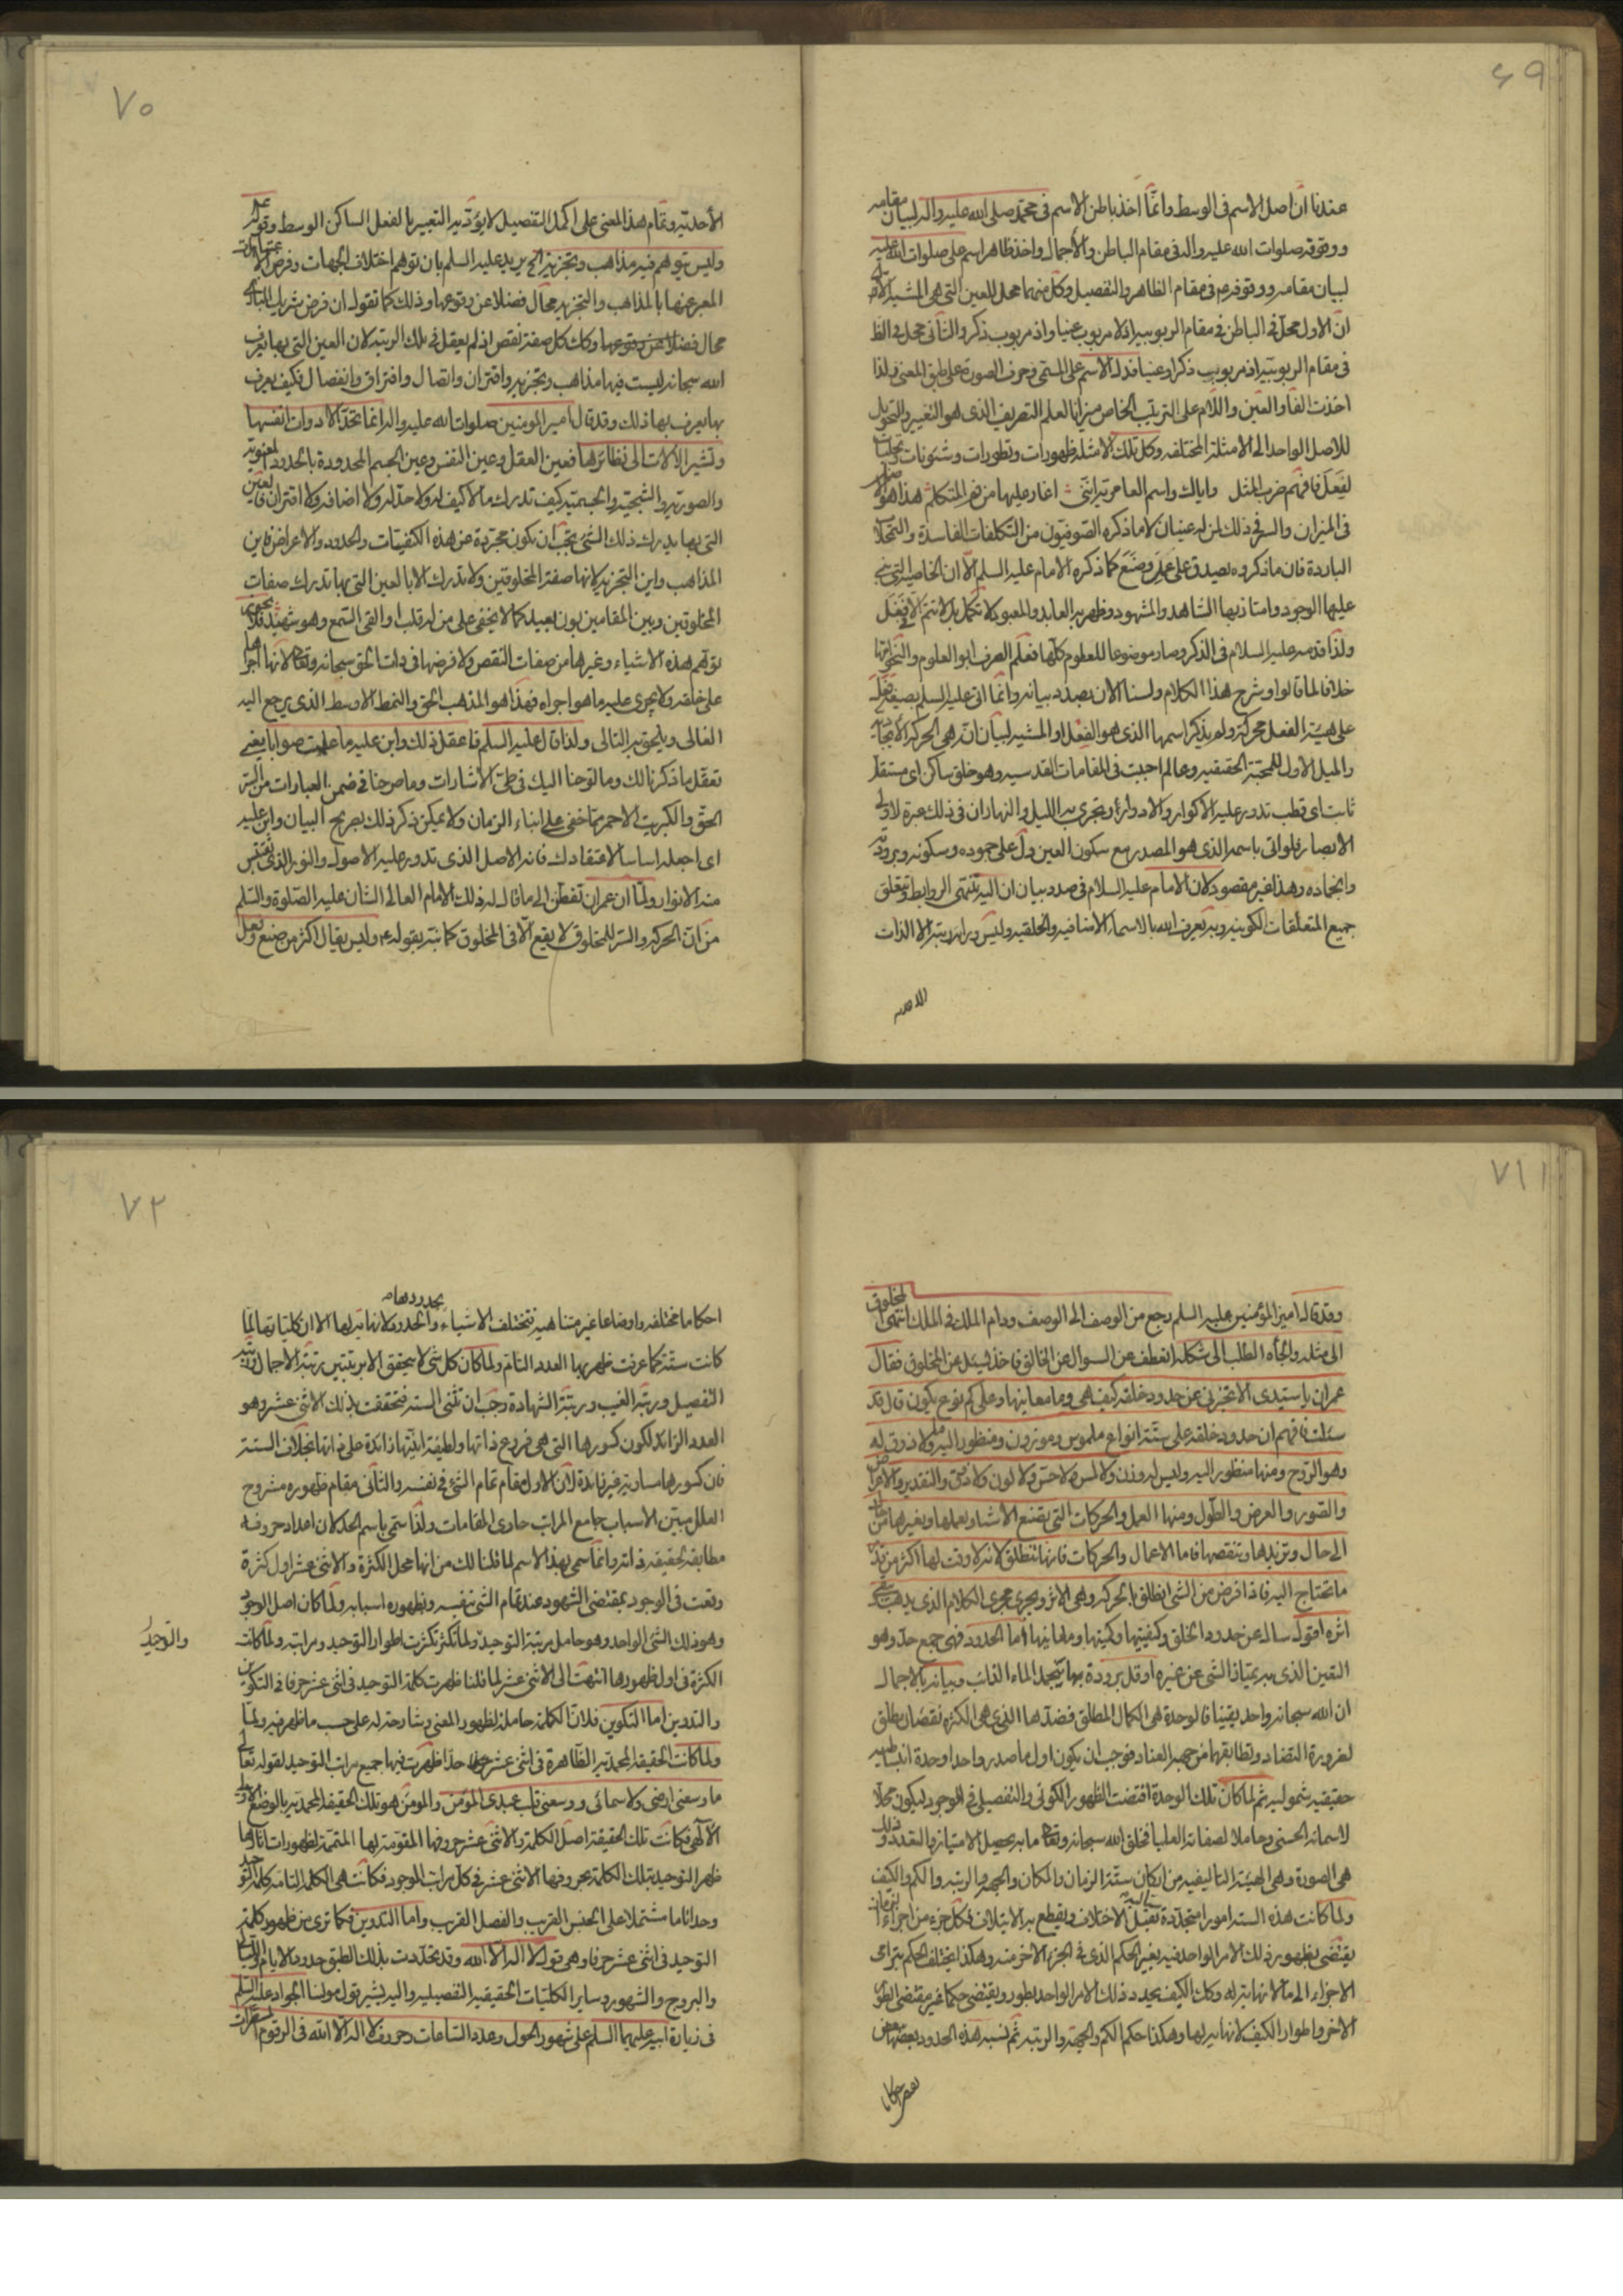 ٦٩
عندنا ان اصل الاسم فى الوسط وانما اخذ باطن الاسم فى محمد صلى الله عليه واله لبيان مقامه
ووقوفه صلوات الله عليه واله فى مقام الباطن والأجمال واخذ ظاهر اسم على صلوات الله عليه
لبيان مقامه ووقوفه فى مقام الظاهر والتفصيل وكل منهما محل للعين التى هى المشية الا
ان الاول محل فى الباطن فى مقام الربوبية اذ لا مربوب عينا واذ مربوب ذكر والثانى محل فى الظ
فى مقام الربوبية اذ مربوب ذكرا وعينا فدل الاسم على المسمى وحرف الصورة على طبق المعنى ولذا
اخذت الفاء والعين واللام على الترتيب الخاص ميزانا لعلم التصريف الذى هو التغيير والتحويل
للاصل الواحد الى الامثلة المختلفة وكل تلك الامثلة ظهورات وتطورات وشئونات وتجليات
لفَعَلَ فافهم ضرب المثل واياك واسم العامرية اننى اغار عليها من فم المتكلم هذا هو
فى الميزان والسر فى ذلك لمن له عينان لا ما ذكره الصوفيون من التكلفات الفاسدة والتمحلات
الباردة فان ما ذكروه يصدق على عَمَل وصَنَع كما ذكره الامام عليه السلم الا ان الخاصية التى
عليها الوجود وامتاز بها الشاهد والمشهود وظهر بها العابد والمعبود لا تكمل بل لا تتم الا فى فَعَل
ولذا قدمه عليه السلام فى الذكر وصار موضوعا للعلوم كلها فعلم الصرف ابو العلوم والنحو امها
خلافا لما قالوا وشرح هذا الكلام ولسنا الان بصدد بيانه وانما اتى عليه السلم بصيغة فعل
على هيئة الفعل محركة ولم يذكر اسمها الذى هو الفِعْل او المشية لبيان انه هى الحركة الايجادية
والميل الاول للمحبة الحقيقية وعالم احببت فى المقامات القدسية وهو خلق ساكن اى مستقل
ثابت اى قطب تدور عليه الاكوار والادوار ويجرى به الليل والنهار ان فى ذلك عبرة لاولى
الابصار فلو اتى باسمه الذى هو المصدر مع سكون العين دل على جموده وسكونه وبرودته
وانجماده وهذا غير مقصود لان الامام عليه السلام فى صدد بيان ان اليه تنتهى الروابط وتتعلق
جميع المتعلقات الكونية وبه تعرف الله بالاسماء الاضافيه والخلقيه وليس وراءه رتبة الا الذات
الاحديه
٧٠
الأحديه وتمام هذا المعنى على اكمل التفصيل لا يؤديه التعبير بالفعل الساكن الوسط وقوله
وليس يتوهم فيه مذاهب وتجزية الخ يريد عليه السلم بان توهم اختلاف الجهات وفرض الاعتبارات
المعبر عنها بالمذاهب والتجزية محال فضلا عن وقوعها وذلك كما نقول ان فرض شريك البارى
محال فضلا عن وقوعها وكك كل صفة نقص اذ لم يعقل فى تلك الرتبة لان العين التى بها نعرف
الله سبحانه ليست فيها مذاهب وتجزية واقتران واتصال وافتراق وانفصال فكيف يعرف
بها يعرف بها ذلك وقد قال امير المومنين صلوات الله عليه واله انما تحد الادوات انفسها
وتشير الالات الى نظائرها فعين العقل وعين النفس وعين الجسم المحدودة بالحدود المعنويه
والصورية والشبحية والجسمية كيف تدرك ما لا كيف له ولا حد له ولا اضافه ولا اقتران فالعين
التى بها يدرك ذلك الشئ يجب ان يكون مجردة عن هذه الكيفيات والحدود والاعراض فاين
المذاهب واين التجزية لانها صفة المخلوقين ولا تدرك الا بالعين التى بها تدرك صفات
المخلوقين وبين المقامين بون بعيد كما لا يخفى على من له قلب او القى السمع وهو شهيد فلا يجرى
توهم هذه الاشياء وغيرها من صفات النقص ولا فرضها فى ذات الحق سبحانه وتعالى لانها اجراها
على خلقه ولا يجرى عليه ما هو اجراه فهذا هو المذهب الحق والنمط الاوسط الذى يرجع اليه
الغالى ويلحق به التالى ولذا قال عليه السلم فاعقل ذلك وابن عليه ما علمت صوابا يعنى
تعقل ما ذكرنا لك وما لوحنا اليك فى طى الاشارات وما صرحنا فى ضمن العبارات من السر
الحق والكبريت الاحمر مما خفى على ابناء الزمان ولا يمكن ذكر ذلك بصريح البيان وابن عليه
اى اجعله اساسا لاعتقادك فانه الاصل الذى تدور عليه الاصول والنور الذى تقتبس
منه الانوار ولما ان عمران تفطن الى ما قال له ذلك الامام العالى الشان عليه الصلوة والسلم
من ان الحركة والستر للمخلوق لا يقع الا فى المخلوق كما نبه بقوله ع وليس يقال اكثر من صنع وعمل
٧١
وقد قال امير المؤمنين عليه السلم رجع من الوصف الى الوصف ودام الملك فى الملك انتهى المخلوق
الى مثله والجأه الطلب الى شكله انعطف عن السوال عن الخالق فاخذ ليسئل عن المخلوق فقال
عمران يا سيدى الا تخبرنى عن حدود خلقه كيف هى وما معانيها وعلى كم نوع يكون قال قد
سئلت فافهم ان حدود خلقه على ستة انواع ملموس وموزون ومنظور اليه وما لا ذوق له
وهو الروح ومنها منظور اليه وليس له وزن ولا لمس ولا حس ولا لون ولا ذوق والتقدير والاعراض
والصور والعرض والطول ومنها العمل والحركات التى تصنع الاشياء وتعملها وتغيرها من حال
الى حال وتزيدها وتنقصها فاما الاعمال والحركات فانها تنطلق لانه لا وقت لها اكثر من قدر
ما تحتاج اليه فاذا فرغ من الشئ انطلق بالحركة وبقى الاثر ويجرى مجرى الكلام الذى يذهب ويبقى
اثره اقول سأله عن حدود الخلق وكيفيتها وكميتها ومعانيها اما الحدود فهى جمع حد وهو
التعين الذى به يمتاز الشئ عن غيره او قل برودة بها يتجمد الماء الذائب وبيانه بالاجمال
ان الله سبحانه واحد يقينا فالوحدة هى الكمال المطلق فضدها الذى هى الكثرة نقصان مطلق
لضرورة التضاد وتطابقهما من جهة العناد فوجب ان يكون اول ما صدر واحدا وحدة انبساطيه
حقيقيه شموليه ثم لما كان تلك الوحدة اقتضت الظهور الكونى والتفصيلى فى الوجود ليكون محلا
لاسمائه الحسنى وحاملا لصفاته العليا فخلق الله سبحانه وتعالى ما به يحصل الامتياز والتعدد وذلك
هى الصورة وهى الهيئة التاليفيه من اركان ستة الزمان والمكان والجهة والرتبة والكم والكيف
ولما كانت هذه الستة امورا متجددة تقبل الاختلاف ويقطع به الايتلاف فكل جزء من اجزاء الزمان
يقتضى بظهور ذلك الامر الواحد فيه بغير الحكم الذى فى الجزء الاخر منه وهكذا يختلف الحكم بترامى
الاجزاء الى ما لا نهاية له وكك الكيف يحدد ذلك الامر الواحد بطور ويقتضى حكما غير مقتضى الطور
الاخر واطوار الكيف لا نهاية لها وهكذا حكم الكم والجهة والرتبة ثم نسبة هذه الحدود بعضها مع
بعض احكاما
٧٢
بحدودها
احكاما مختلفه واوضاعا غير متناهية فتختلف الاشياء والحدود لا نهاية لها الا ان كلياتها لما
كانت ستة كما عرفت ظهر بها العدد التام ولما كان كل شئ لا يتحقق الا برتبتين رتبة الاجمال ورتبة
التفصيل ورتبة الغيب ورتبة الشهادة وجب ان تثنى الستة فتحققت بذلك الاثنى عشر وهو
العدد الزائد لكون كسورها التى هى فروع ذاتها ولطيفة انيتها زائدة على ذاتها بخلاف الستة
فان كسورها مساوية غير زائدة لان الاول مقام تمام الشئ فى نفسه والثانى مقام ظهوره مشروح
العلل مبين الاسباب جامع المراتب حاوى المقامات ولذا سمى باسم الحد لان اعداد حروفه
مطابقة لحقيقة ذاته وانما سمى بهذا الاسم لما قلنا لك من انها محل الكثرة والاثنى عشر اول كثرة
وقعت فى الوجود بمقتضى الشهود عند تمام الشئ بنفسه وبظهوره اسبابه ولما كان اصل الوجود
وهو ذلك الشئ الواحد وهو حامل مرتبة التوحيد ولما تكثر تكثرت اطوار التوحيد ومراتبه ولما كانت
والتوحيد
الكثرة فى اول ظهورها انتهت الى الاثنى عشر لما قلنا ظهرت كلمة التوحيد فى اثنى عشر حرفا فى التكوين
والتدوين اما التكوين فلان الكلمة حاملة لظهور المعنى وشارحة له على حسب ما ظهر فيه ولما
ولما كانت الحقيقة المحمدية الظاهرة فى اثنى عشر حدا ظهرت فيها جميع مراتب التوحيد لقوله تعالى
ما وسعنى ارضى ولا سمائى ووسعنى قلب عبدى المؤمن والمومن هو تلك الحقيقة المحمدية بالوضع الاولى
الآلهى فكانت تلك الحقيقة اصل الكلمة والاثنى عشر حروفها المقومة لها المتممة لظهورات اثارها
ظهر التوحيد بتلك الكلمة بحروفها الاثنى عشر فى كل مراتب الوجود فكانت هى الكلمة التامة كلمة التوحيد
وحدا تاما مشتملا على الجنس القريب والفصل القريب واما التدوين فكما ترى من ظهور كلمة
التوحيد فى اثنى عشر حرفا وهى قول لا اله الا الله وقد تحددت بذلك الطبق حدود الايام والليالى
والبروج والشهور وساير الكليات الحقيقيه التفصيليه واليه يشير قول مولينا الجواد عليه السلم
فى زيارة ابيه عليهما السلم على شهور الحول وعدد الساعات وحروف لا اله الا الله فى الرقوم المسطرات